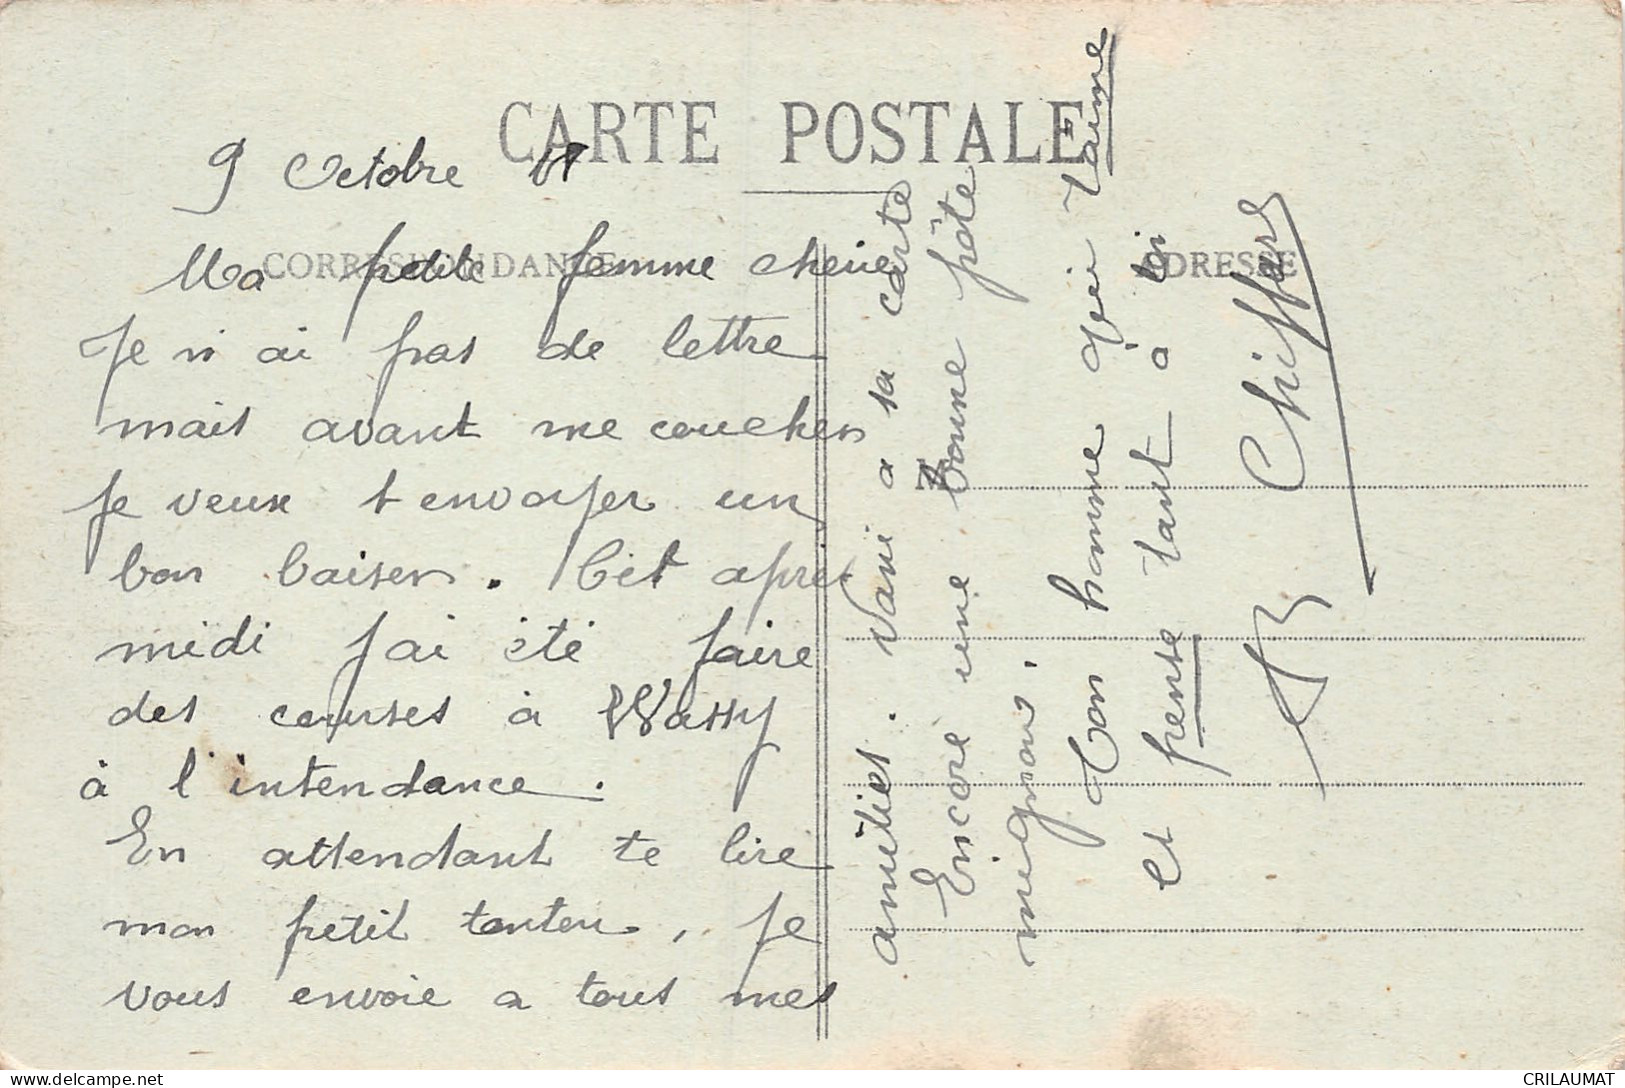 CARTE POSTALE
CORRESPONDANCE
ADRESSE
9 Octobre 17
Ma petite femme cherie
Je n ai pas de lettre
mais avant me coucher
je veux t envoyer un
bon baiser. Cet apres
midi j ai été faire
des courses à Wassy
à l'intendance.
En attendant te lire
mon petit tonton, je
vous envoie a tous mes
amitiés. Vani a sa carte
Encore une bonne pôte
mignons.
Ton homme qui t'aime
et pense tant à toi
Chiffer
CRILAUMAT